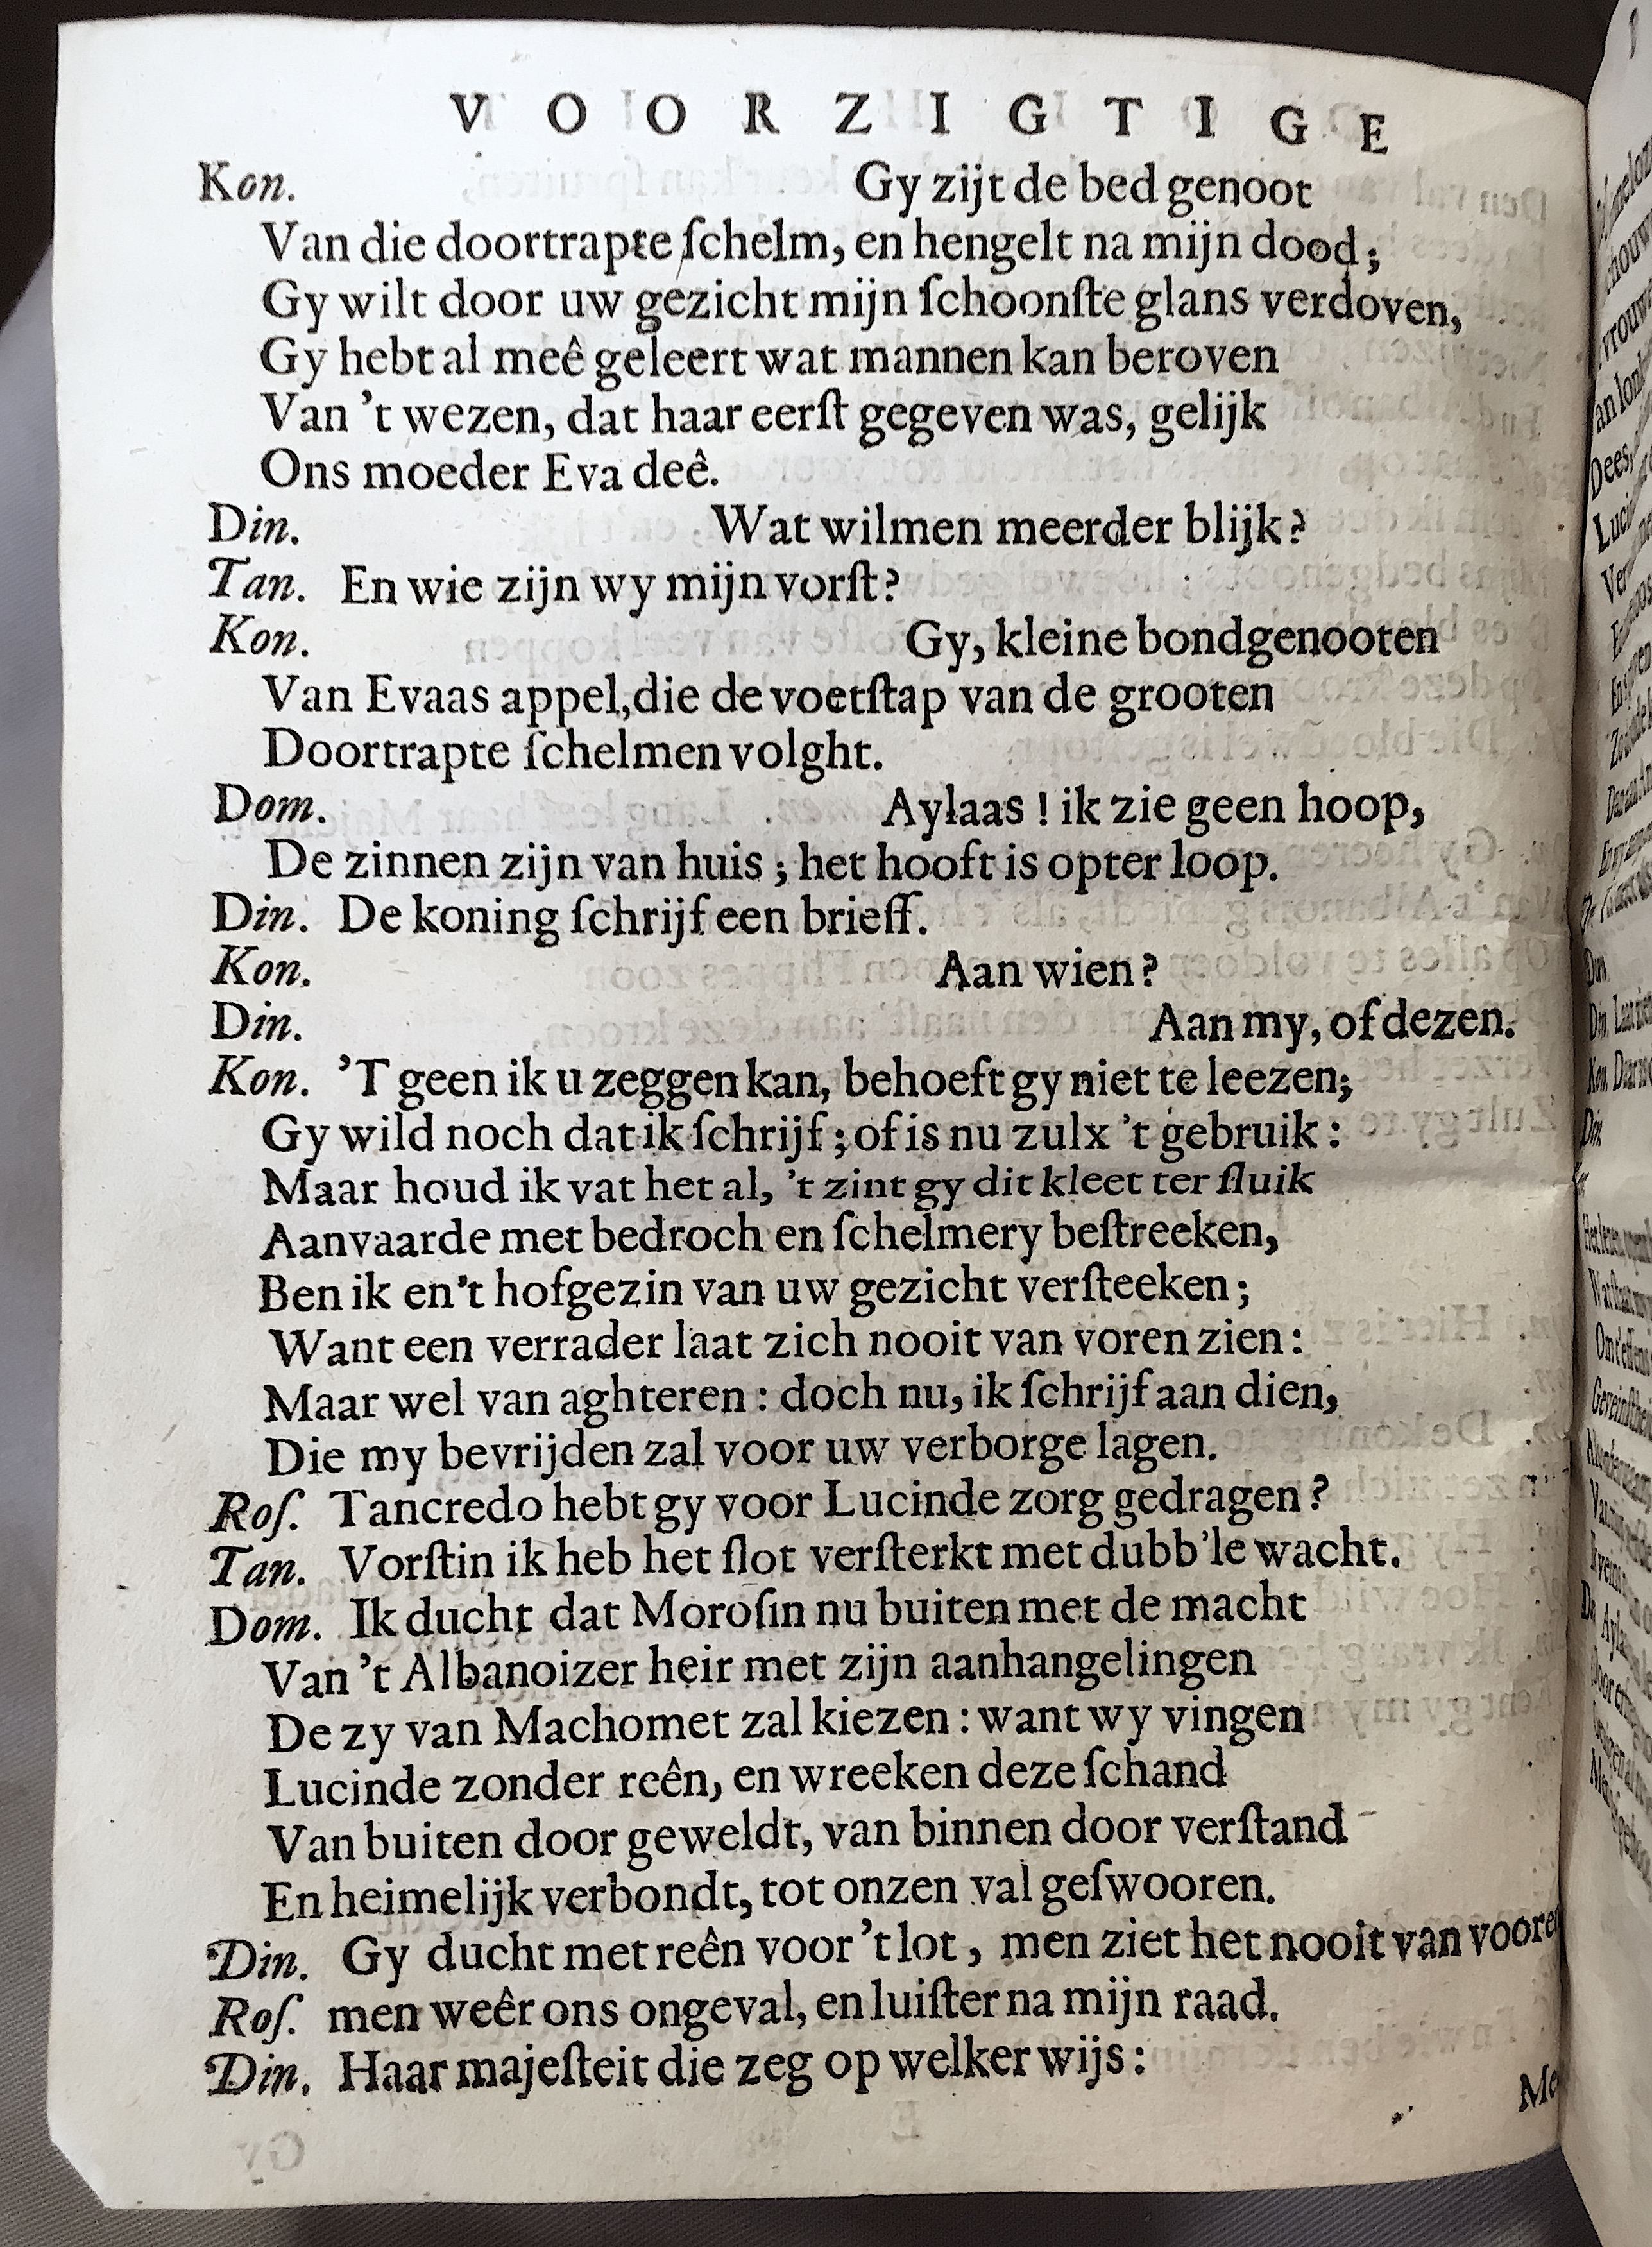 VOORZIGTIGE
Kon. Gy zijt de bed genoot
Van die doortrapte ſchelm, en hengelt na mijn dood;
Gy wilt door uw gezicht mijn ſchoonſte glans verdoven,
Gy hebt al meê geleert wat mannen kan beroven
Van ’t wezen, dat haar eerſt gegeven was, gelijk
Ons moeder Eva deê.
Din. Wat wilmen meerder blijk?
Tan. En wie zijn wy mijn vorſt?
Kon. Gy, kleine bondgenooten
Van Evaas appel, die de voetſtap van de grooten
Doortrapte ſchelmen volght.
Dom. Aylaas! ik zie geen hoop,
De zinnen zijn van huis; het hooft is opter loop.
Din. De koning ſchrijf een brieff.
Kon. Aan wien?
Din. Aan my, of dezen.
Kon. ’T geen ik u zeggen kan, behoeft gy niet te leezen;
Gy wild noch dat ik ſchrijf; of is nu zulx ’t gebruik:
Maar houd ik vat het al, ’t zint gy dit kleet ter ſluik
Aanvaarde met bedroch en ſchelmery beſtreeken,
Ben ik en’t hofgezin van uw gezicht verſteeken;
Want een verrader laat zich nooit van voren zien:
Maar wel van aghteren: doch nu, ik ſchrijf aan dien,
Die my bevrijden zal voor uw verborge lagen.
Roſ. Tancredo hebt gy voor Lucinde zorg gedragen?
Tan. Vorſtin ik heb het ſlot verſterkt met dubb’le wacht.
Dom. Ik ducht dat Moroſin nu buiten met de macht
Van ’t Albanoizer heir met zijn aanhangelingen
De zy van Machomet zal kiezen: want wy vingen
Lucinde zonder reên, en wreeken deze ſchand
Van buiten door geweldt, van binnen door verſtand
En heimelijk verbondt, tot onzen val geſwooren.
Din. Gy ducht met reên voor ’t lot, men ziet het nooit van vooren
Roſ. men weêr ons ongeval, en luiſter na mijn raad.
Din. Haar majeſteit die zeg op welker wijs: